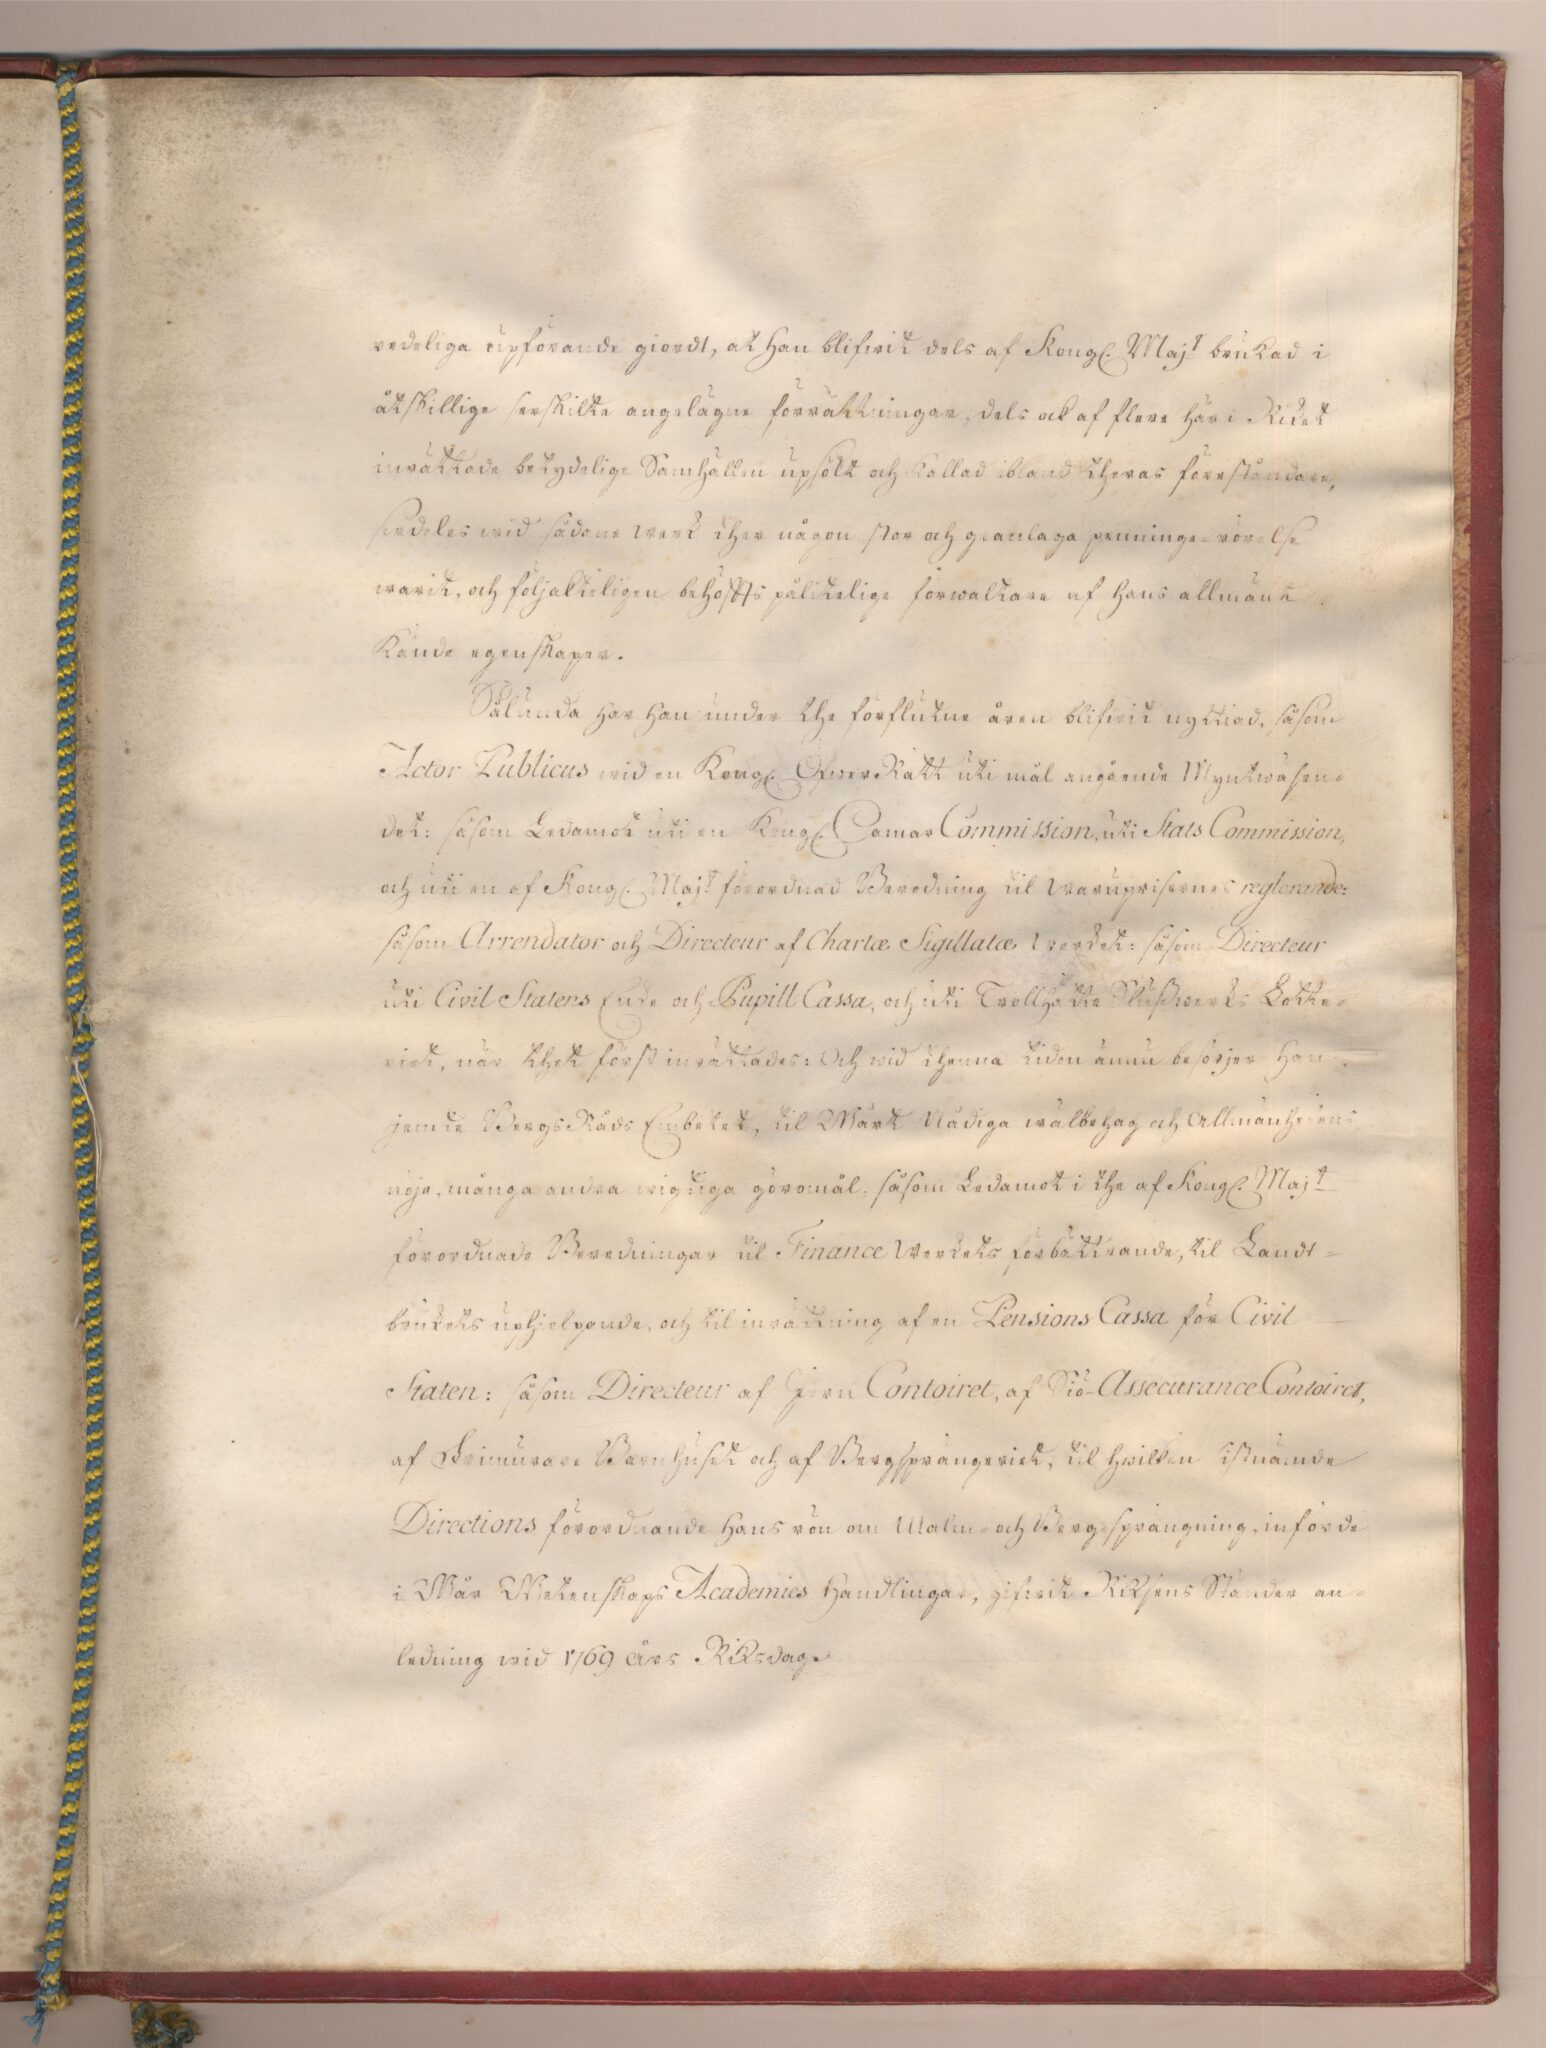 redeliga upförande giordt, at Han blifwit dels af Kongl. Maj:t brukad i
åtskillige serskilte angelägne förrättningar, dels ock af flere här i Riket
inrättade betydelige Samhällen upsökt och kallad ibland theras föreståndare,
serdeles wid sådane werk ther någon stor och granlaga penninge-rörelse
warit, och följakteligen behöfts pålitelige förwaltare af Hans allmänt
kände egenskaper.
Sålunda har Han under the förflutne åren blifwit nyttiad, såsom
Actor Publicus wid en Kongl. ÖfwerRätt uti mål angående Myntwäsen-
det: såsom Ledamot uti en Kongl. Camar Commission, uti Stats Commission,
och uti en af Kongl. Maj:t förordnad Beredning til Warupriserness reglerande:
såsom Arrendator och Directeur af Chartæ Sigillatæ werket: såsom Directeur
uti Civil Statens Enke och Pupill Cassa, och uti Trollhätte Slussewerks Lotte-
riet, när thet först inrättades: Och wid thenna tiden ännu besörjer Han
jemte BergsRåds Embetet, til Wårt Nådiga wälbehag och Allmänhetens
nöje, många andra wigtiga göromål, såsom Ledamot i the af Kongl. Maj:t
förordnade Beredningar til Finance Werkets förbättrande, til Landt-
brukets uphielpande, och til inrättning af en Pensions Cassa för Civil
Staten: såsom Directeur af Jern Contoiret, af Siö-Assecurance Contoiret,
af Frimurare Barnhuset och af Bergsprängeriet, til hwilken istnämde
Directions förordnande Hans rön om Malm- och Bergsprängning, införde
i Wår Wetenskaps Academies Handlingar, gifwit Riksens Ständer an-
ledning wid 1769 Års Riksdag.